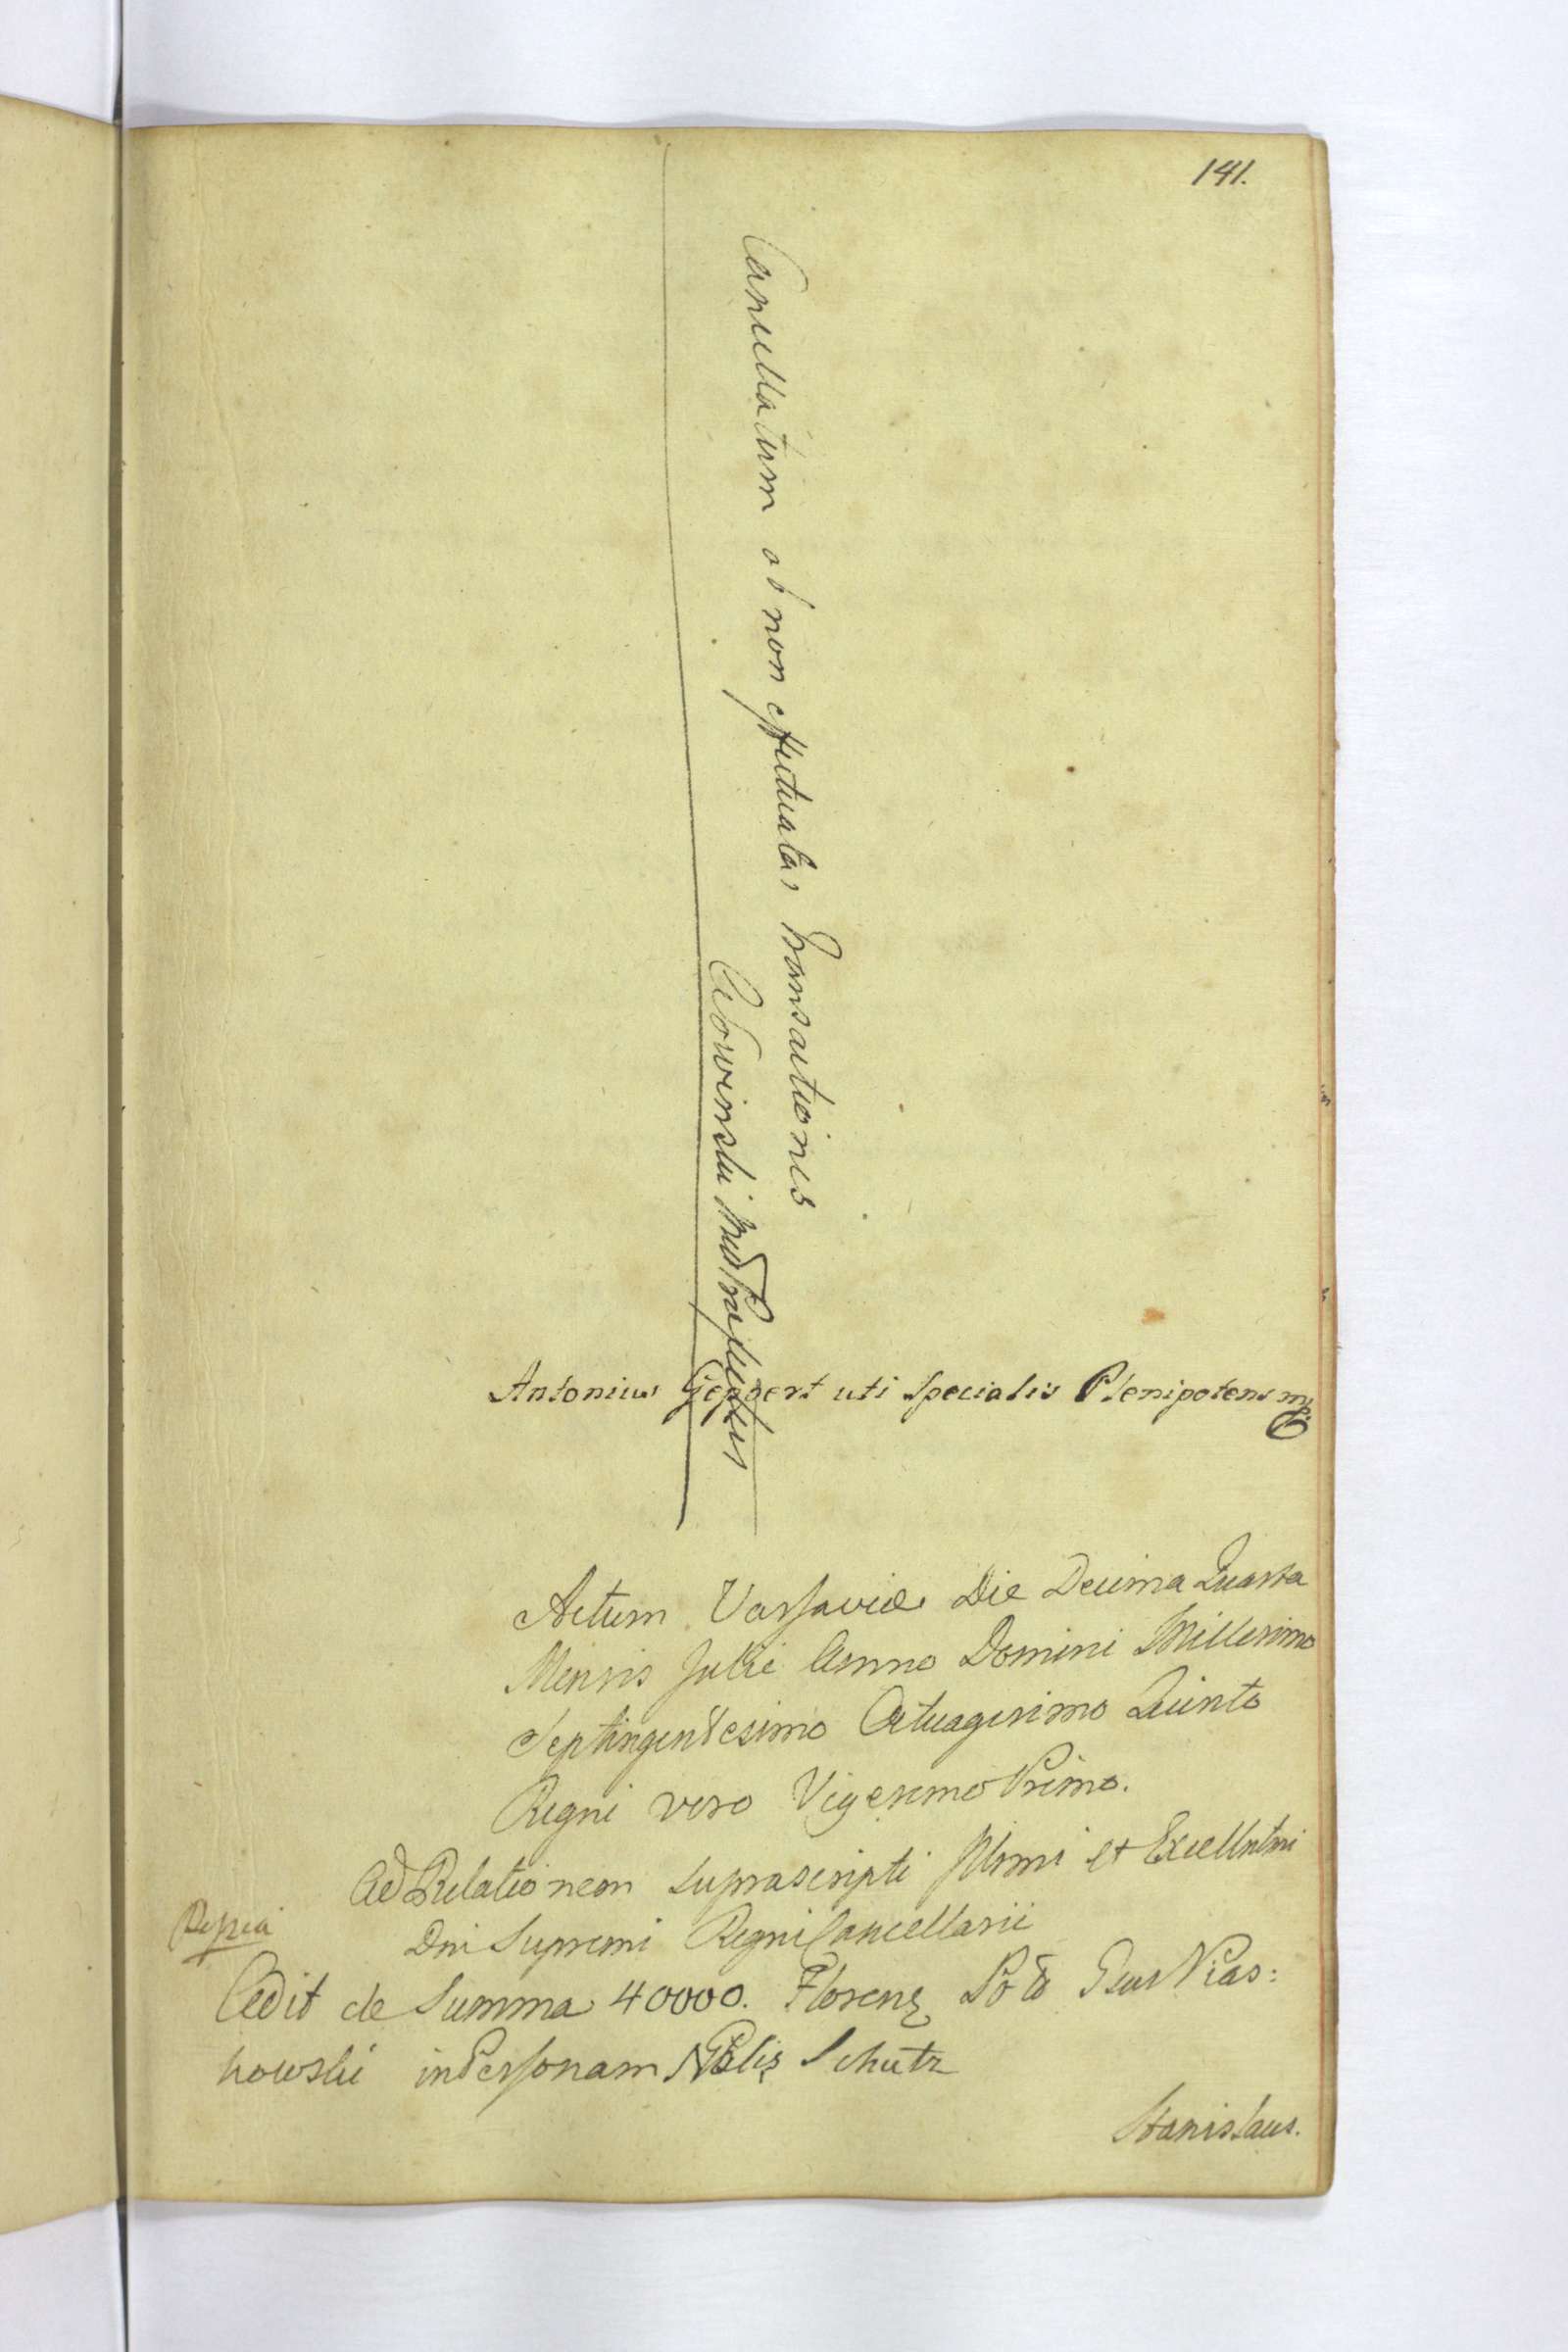 141.
Cancellatum ob non effectuatas Transactiones
Antonius Geppert uti Specialis Plenipotens mp
Actum Varsaviæ Die Decima Quarta
Mensis Julii Anno Domini Millesimo
Septingentesimo Octuagesimo Quinto
Regni vero Vigesimo Primo.
Ad Relationem suprascripti Illmi et Excellntmi
Dni Supremi Regni Cancellarii
Cedit de Summa 40000. Floren
kowski in Personam Nblis Schutz
Stanislaus.